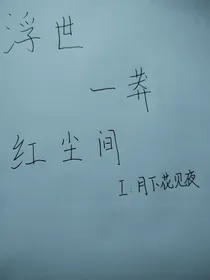 浮世
一莽
红尘间
I：月下花见夜